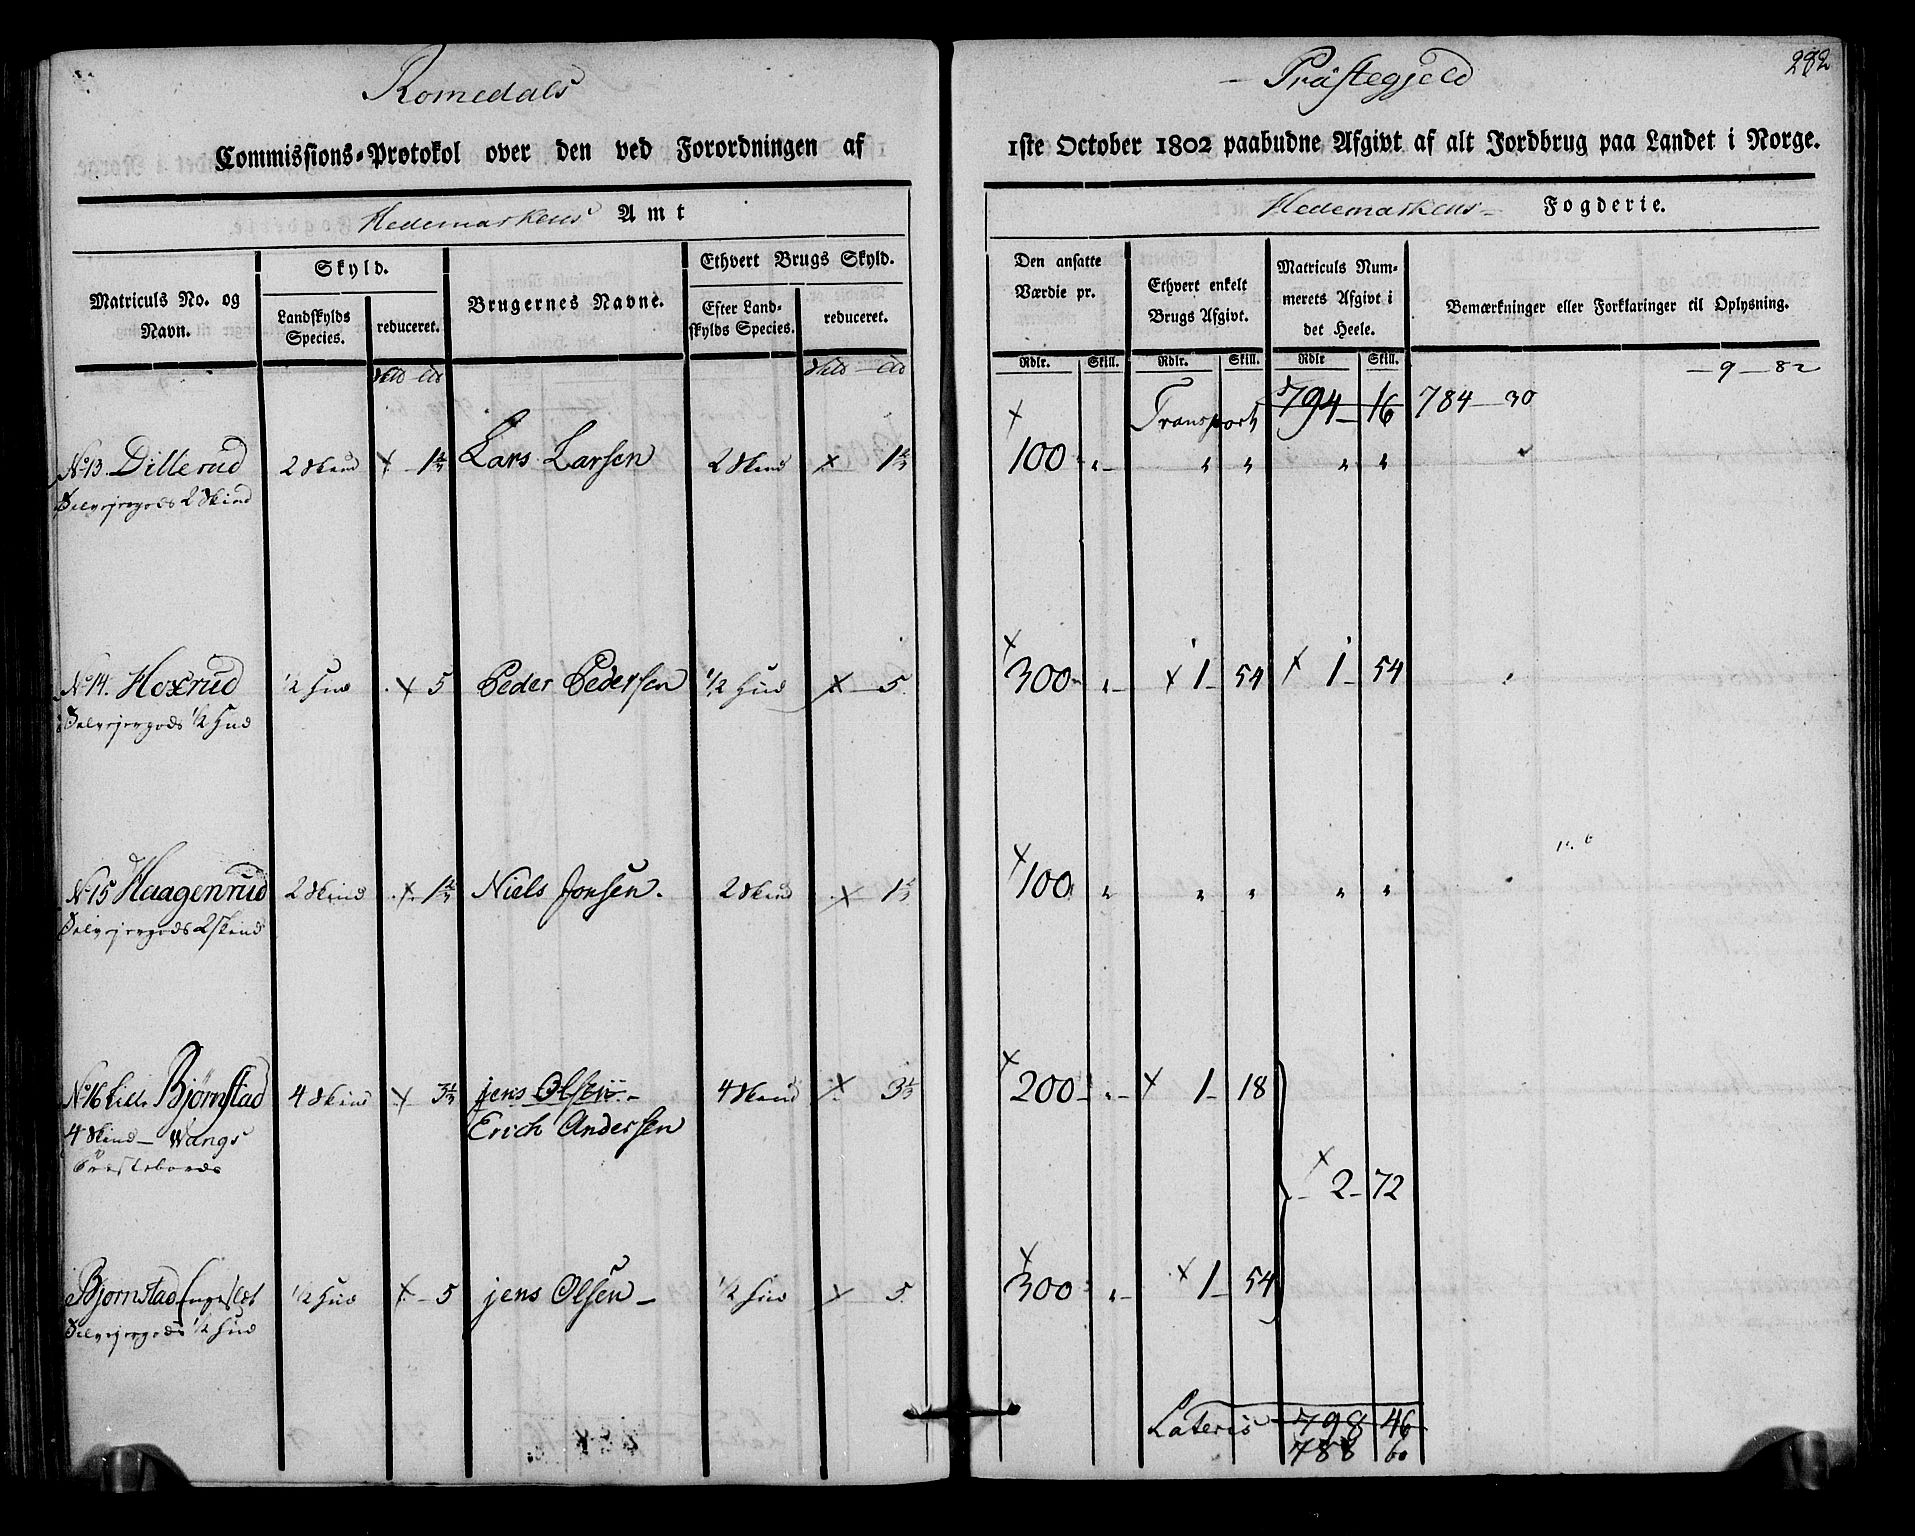 Romedals
Præstegjeld
282
Commissions-Protokol over den ved Forordningen af
1ste October 1802 paabudne Afgivt af alt Jordbrug paa Landet i Norge.
Hedemarkens Amt
Hedemarkens Fogderie.
Matriculs No. og Navn.
Skyld.
Landskylds Species.
reduceret.
Brugernes Navne.
Ethvert Brugs Skyld.
Efter Landskylds Species.
reduceret.
Den ansatte Værdie pr.
Ethvert enkelt Brugs Afgivt.
Matriculs Nummerets Afgivt i det Heele.
Bemærkninger eller Forklaringer til Oplysning.
Rdlr. Skill. Rdlr. Skill. Rdlr Skill.
9 – 82
Transport 794 – 16 784 – 30
No 13. Dillerud 2 Skind × 1⅔ Lars Larsen 2 Skind × 1⅔ × 100 „ – „ „ „ „
Selvejergods 2 Skind
No 14. Hoxrud ½ Hud × 5 Peder Pedersen ½ Hud × 5. × 300 „ – × 1 – 54 × 1 – 54
Selvejergods ½ Hud
No 15 Haagenrud 2 Skind × 1⅔ Niels Jonsen. 2 Skind × 1⅔ × 100 „ „ „ „ „
Selvejergods 2 Skind
No 16 Lille Bjørnstad 4 Skind × 3⅓ jens Olsen – 4 Skind × 3⅓ × 200 – „ – × 1 – 18
4 Skind – Wangs Erich Andersen
Præstebords
× 2 – 72
Bjørnstad Engeslet ½ Hud × 5 jens Olsen – ½ Hud × 5. × 300 „ – × 1 – 54
Selvejergods ½ Hud
Lateris 798 46
788 60